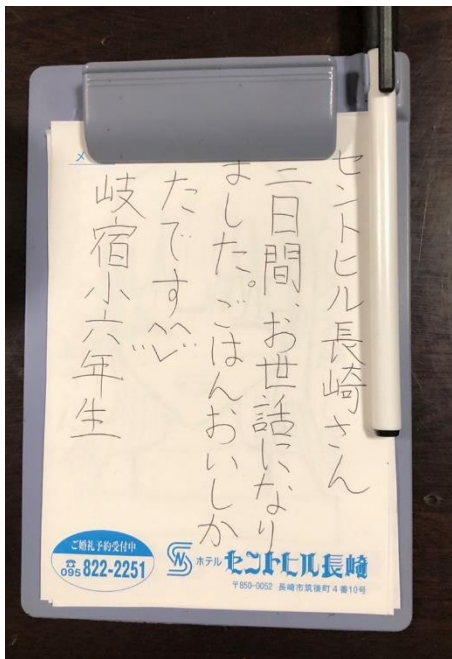 セントヒル長崎さん
二日間、お世話になり
ました。ごはんおいしか
たです^^
岐宿小六年生
メ
ご婚礼予約受付中
☎095 822-2251
ホテル セントヒル長崎
〒850-0052 長崎市筑後町4番10号